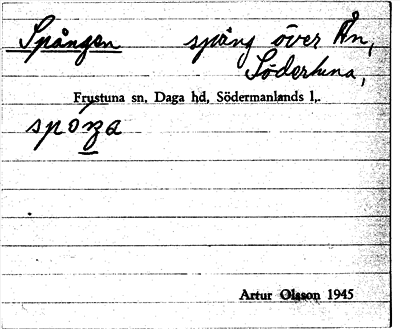 Spången spång över Ån,
Söderluna,
Frustuna sn, Daga hd, Södermanlands l,.
spoŋa
Artur Olsson 1945